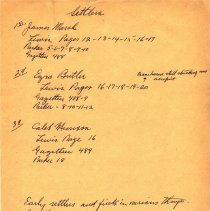 Settlers
1st James March
Lewis Pages 12-13-14-15-16-17
Parker 5-6-7-8-9-10
Gazetteer 488
2d Ezra Butler
Lewis Pages 16-17-18-19-20
Gazetteer 488-9
Parker - 8-10-11-12
3d Caleb Munson
Lewis Page 16
Gazetteer 489
Parker 18
Early settlers and firsts in various things